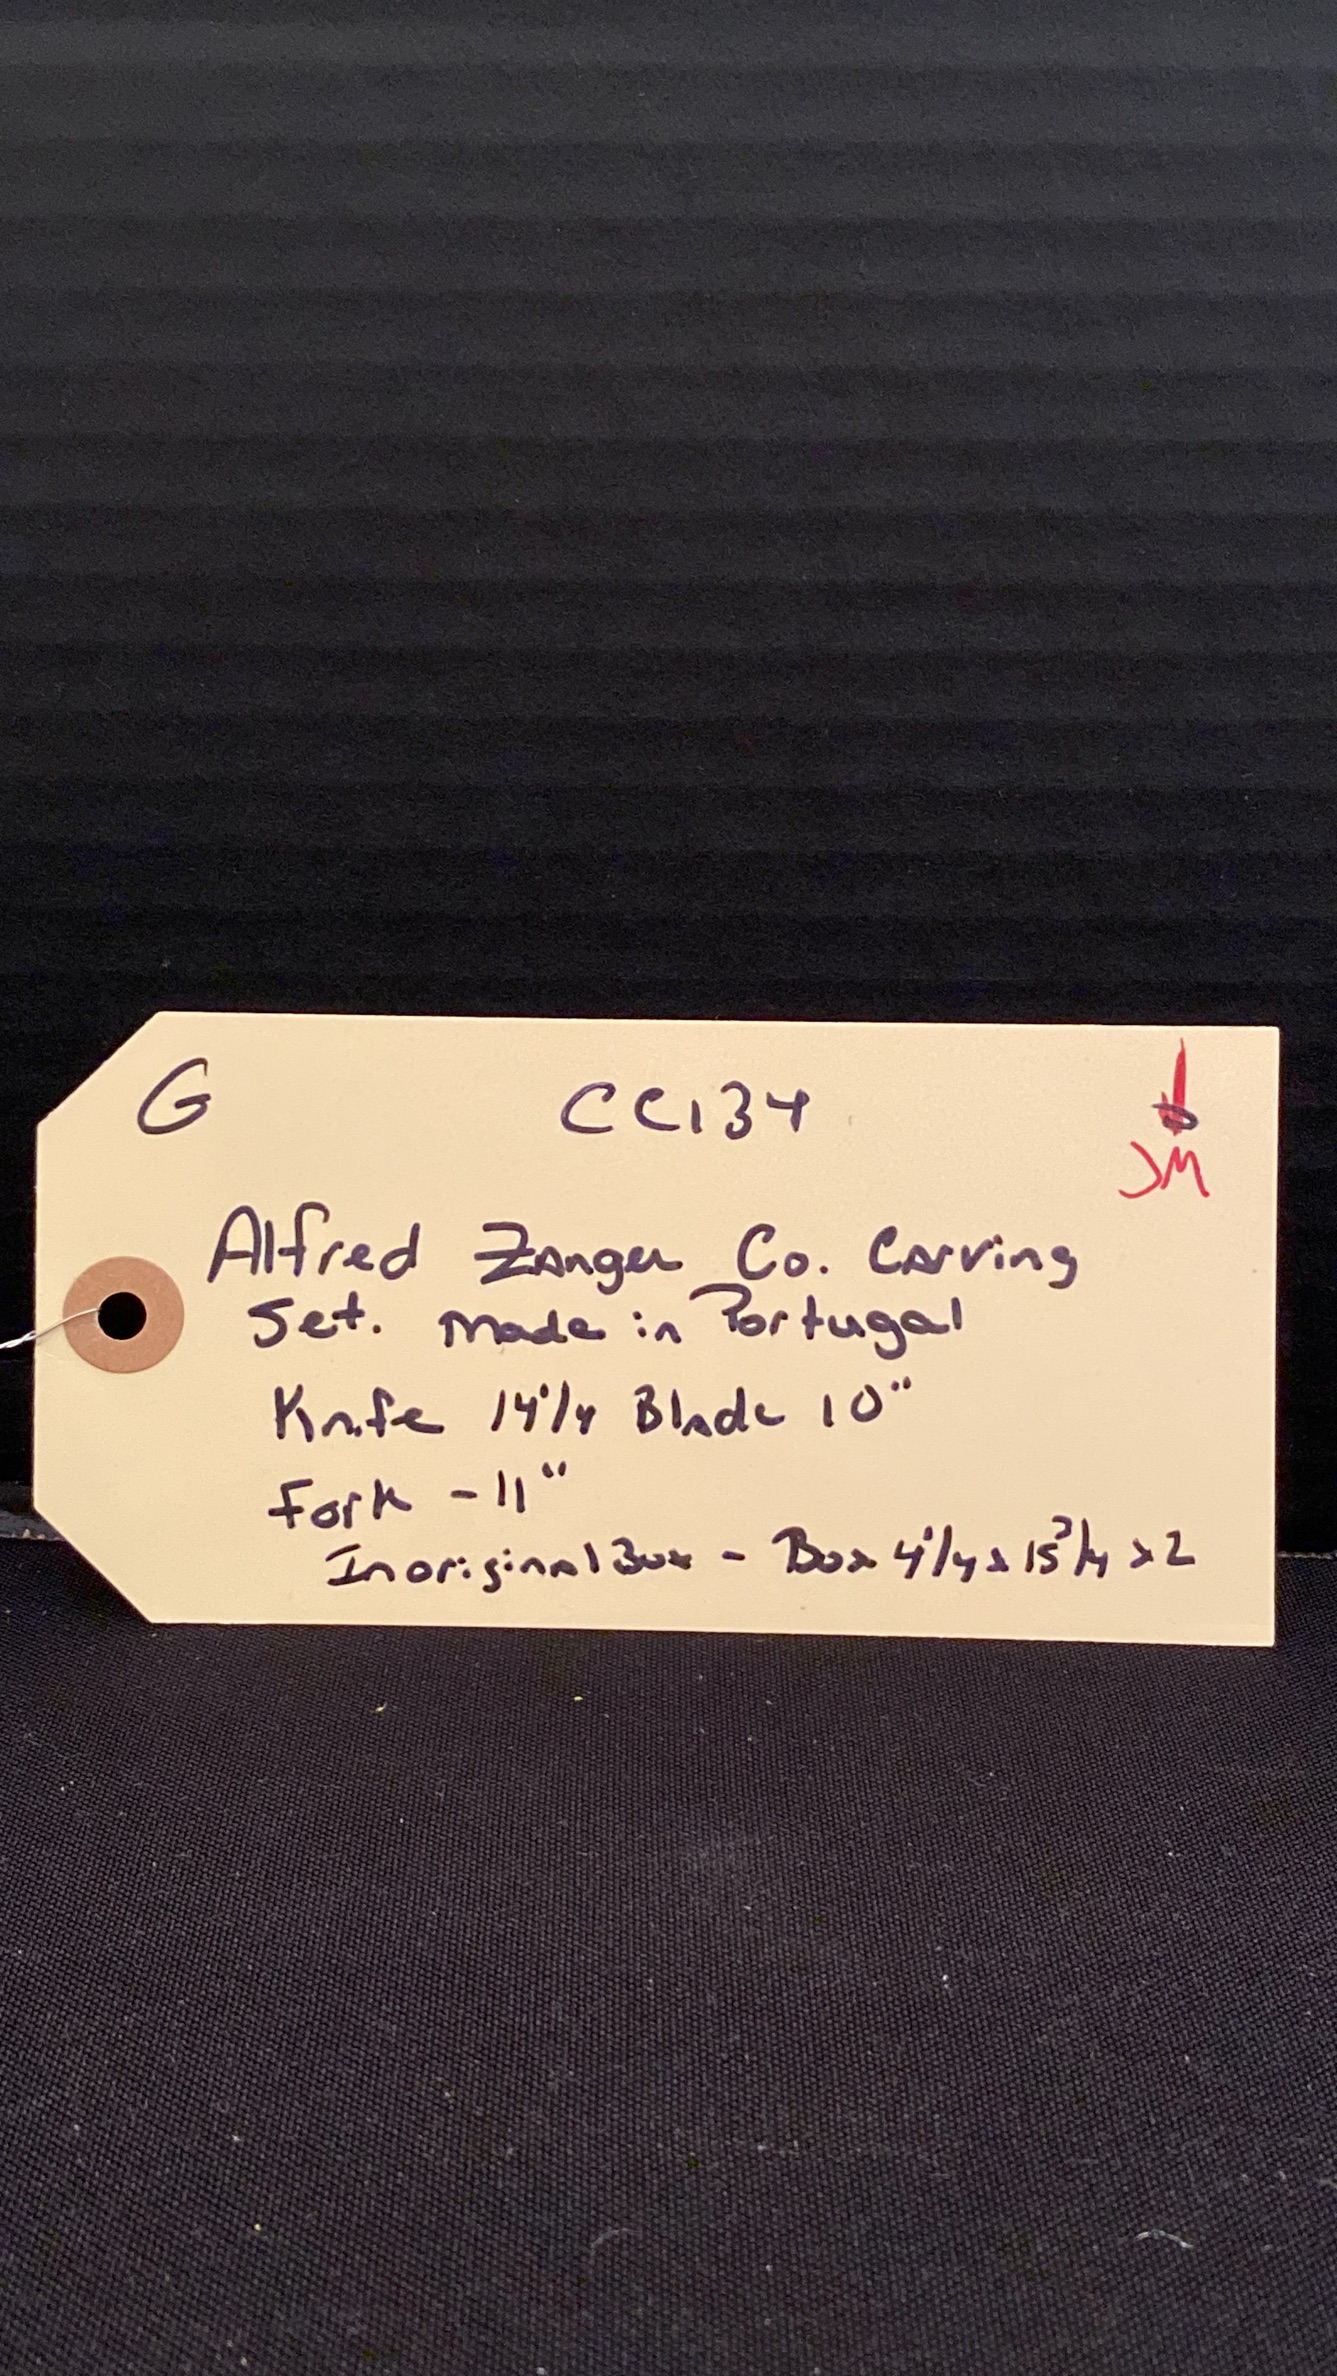 G CC134
JM
Alfred Zanger Co. Carving
Set. Made in Portugal
Knife 14 1/4 Blade 10"
Fork - 11"
In original Box - Box 4 1/4 x 15 3/4 x 2